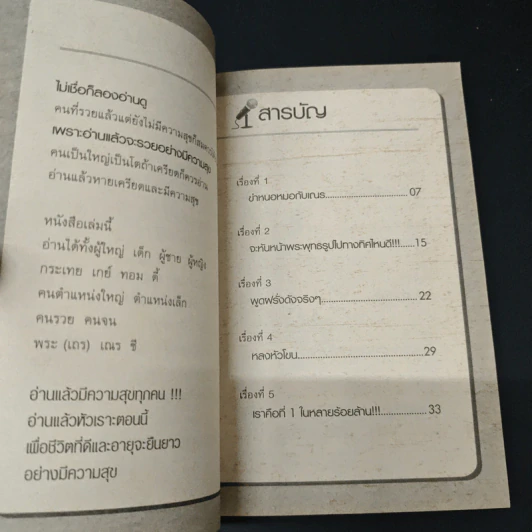 ไม่เชื่อก็ลองอ่านดู
คนที่รวยแล้วแต่ยังไม่มีความสุขก็
เพราะอ่านแล้วจะรวยอย่างมีความสุข
คนเป็นใหญ่เป็นโตถ้าเครียดก็ควรอ่าน
อ่านแล้วหายเครียดและมีความสุข
หนังสือเล่มนี้
อ่านได้ทั้งผู้ใหญ่ เด็ก ผู้ชาย ผู้หญิง
กระเทย เกย์ ทอม ดี้
คนตำแหน่งใหญ่ ตำแหน่งเล็ก
คนรวย คนจน
พระ (เถร) เณร ชี
อ่านแล้วมีความสุขทุกคน !!!
อ่านแล้วหัวเราะตอนนี้
เพื่อชีวิตที่ดีและอายุจะยืนยาว
อย่างมีความสุข
สารบัญ
เรื่องที่ 1
ย่าหนอหมอกับเณร........................07
เรื่องที่ 2
จะหันหน้าพระพุทธรูปไปทางทิศไหนดี!!!......15
เรื่องที่ 3
พูดฝรั่งดังจริงๆ............................22
เรื่องที่ 4
หลงหัวโขน....................................29
เรื่องที่ 5
เราคือที่ 1 ในหลายร้อยล้าน!!!.................33